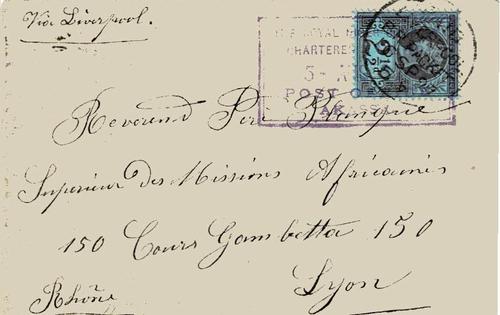 Via Liverpool.
ROYAL
CHARTERED
POST
Reverend Père Planque
Supérieur des Missions Africaines
150 Cours Gambetta 150
Lyon
Rhône